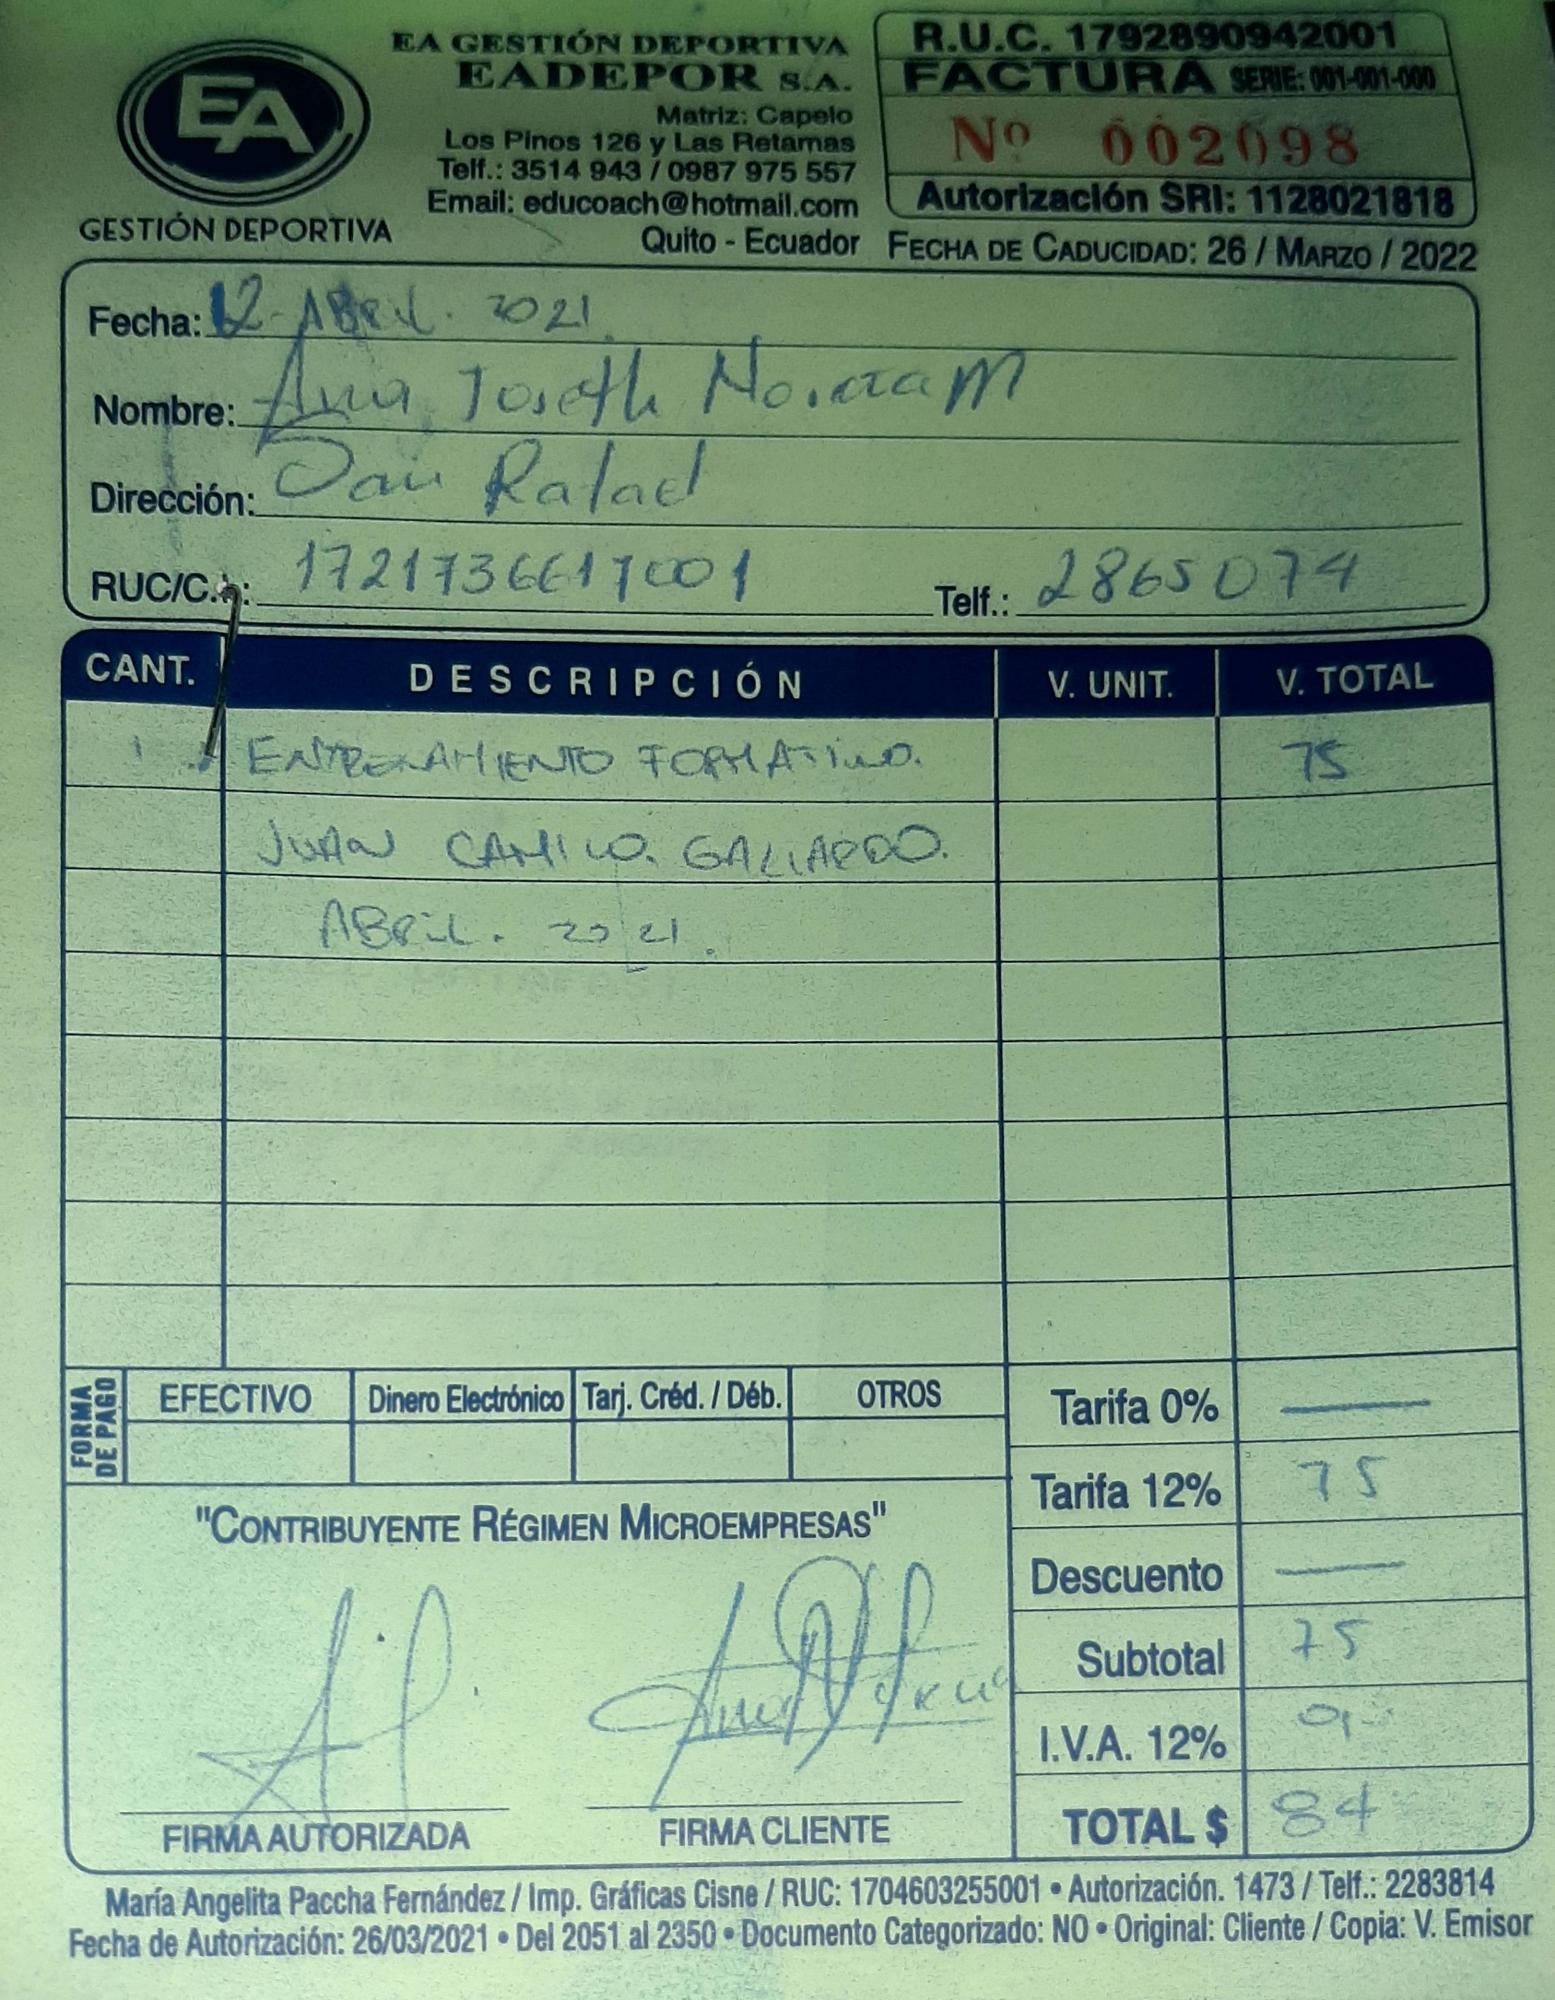 EA
GESTIÓN DEPORTIVA
EA GESTIÓN DEPORTIVA
EADEPOR S.A.
Matriz: Capelo
Los Pinos 126 y Las Retamas
Telf.: 3514 943 / 0987 975 557
Email: educoach@hotmail.com
Quito - Ecuador
R.U.C. 1792890942001
FACTURA SERIE: 001-001-000
Nº 002098
Autorización SRI: 1128021818
FECHA DE CADUCIDAD: 26 / MARZO / 2022
Fecha: 12 - ABRIL. 2021
Nombre: Ana Joseth M
Dirección: San Rafael
RUC/C.I.: 1721736617001 Telf.: 2865074
CANT. DESCRIPCIÓN V. UNIT. V. TOTAL
1 ENTRENAMIENTO FORMATIVO. 75
JUAN CAMILO. GALLARDO.
ABRIL. 2021.
FORMA DE PAGO
EFECTIVO Dinero Electrónico Tarj. Créd. / Déb. OTROS
Tarifa 0% —
Tarifa 12% 75
Descuento —
Subtotal 75
I.V.A. 12% 9
TOTAL $ 84
"CONTRIBUYENTE RÉGIMEN MICROEMPRESAS"
FIRMA AUTORIZADA FIRMA CLIENTE
María Angelita Paccha Fernández / Imp. Gráficas Cisne / RUC: 1704603255001 • Autorización. 1473 / Telf.: 2283814
Fecha de Autorización: 26/03/2021 • Del 2051 al 2350 • Documento Categorizado: NO • Original: Cliente / Copia: V. Emisor